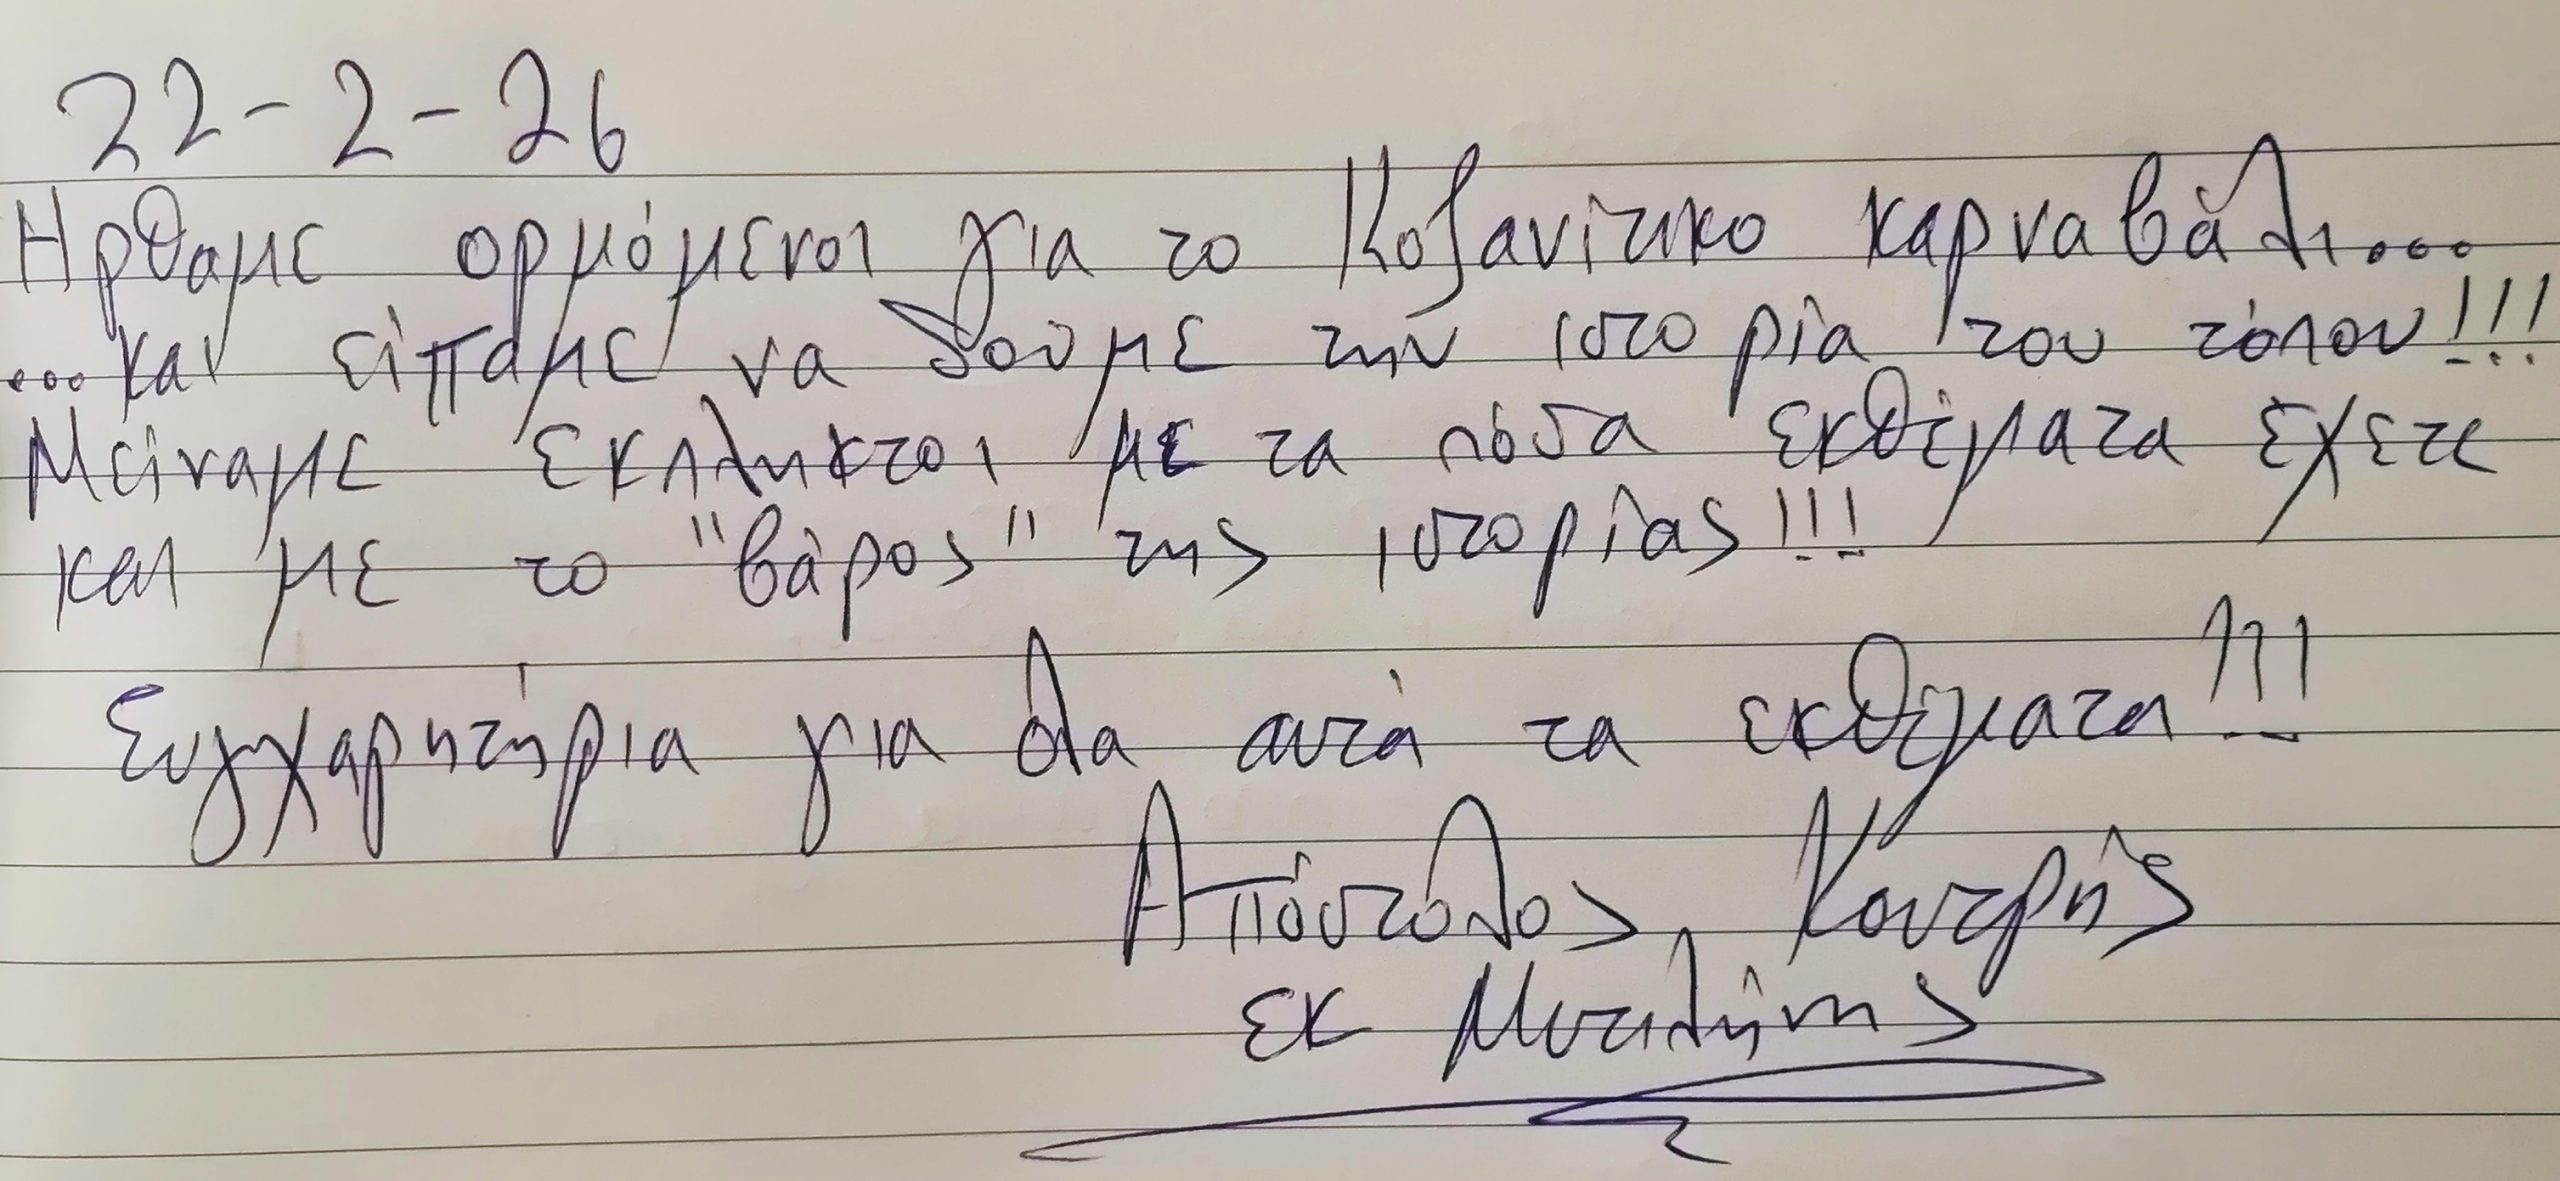 22-2-26
Ηρθαμε ορμόμενοι για το Κοζανίτικο καρναβάλι...
...και είπαμε να δούμε την ιστορία του τόπου!!!
Μείναμε έκπληκτοι με τα πόσα εκθέματα έχετε
και με το "βάρος" της ιστορίας!!!
Συγχαρητήρια για όλα αυτά τα εκθέματα!!!
Απόστολος Κουτρής
εκ Μυτιλήνης